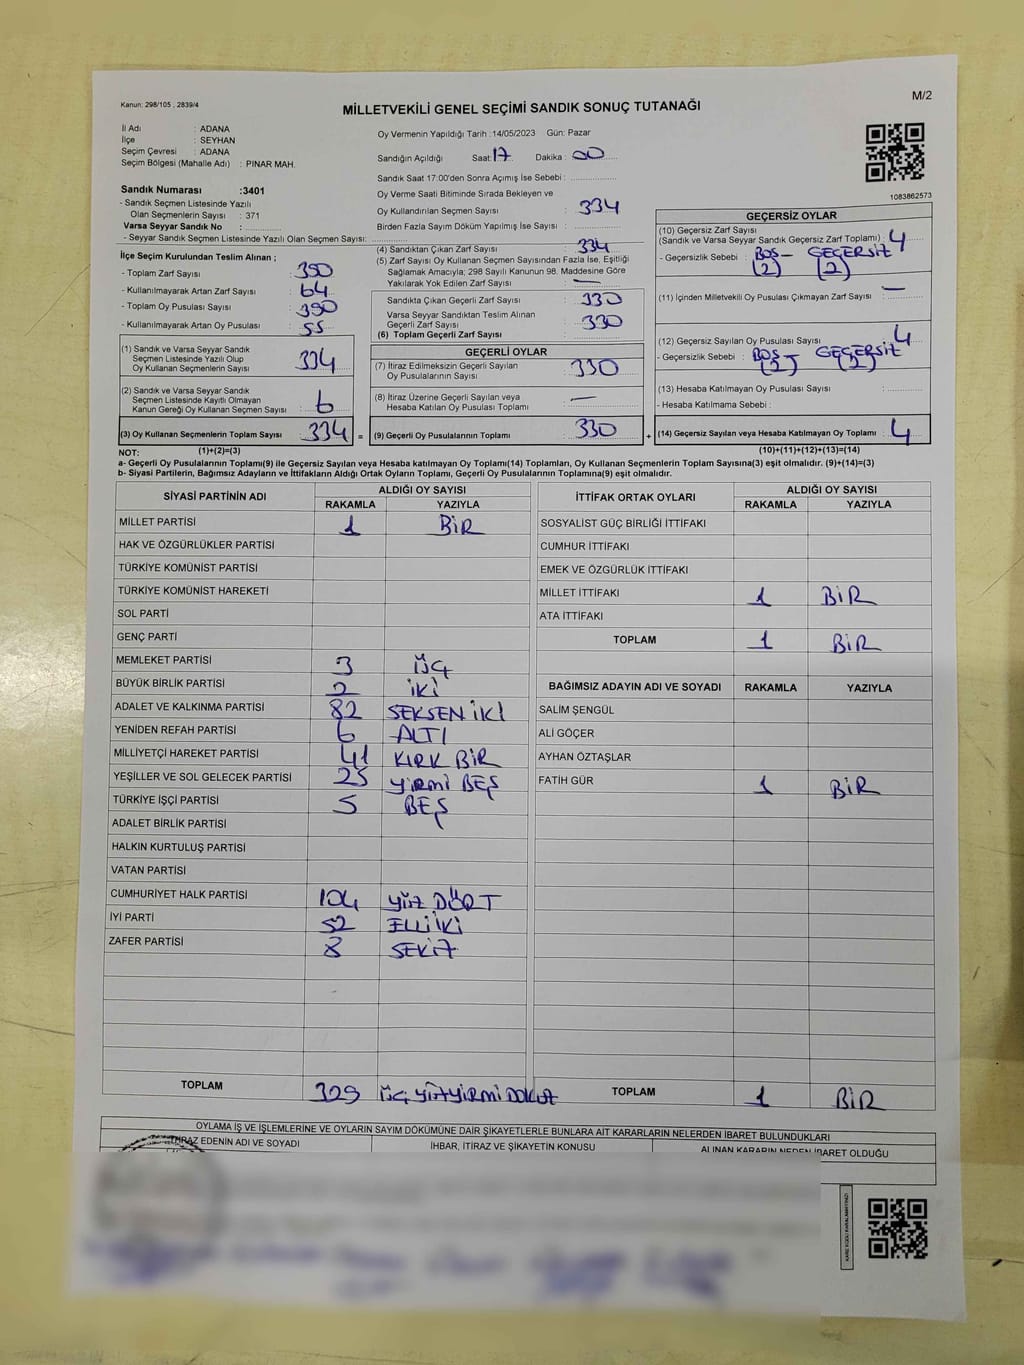 Kanun: 298/105 , 2839/4
M/2
MİLLETVEKİLİ GENEL SEÇİMİ SANDIK SONUÇ TUTANAĞI
İl Adı : ADANA
İlçe : SEYHAN
Seçim Çevresi : ADANA
Seçim Bölgesi (Mahalle Adı) : PINAR MAH.
Sandık Numarası :3401
- Sandık Seçmen Listesinde Yazılı
Olan Seçmenlerin Sayısı : 371
Varsa Seyyar Sandık No :
- Seyyar Sandık Seçmen Listesinde Yazılı Olan Seçmen Sayısı:
Oy Vermenin Yapıldığı Tarih :14/05/2023 Gün: Pazar
Sandığın Açıldığı Saat: 17 Dakika : 00
Sandık Saat 17:00'den Sonra Açımış İse Sebebi :
Oy Verme Saati Bitiminde Sırada Bekleyen ve
Oy Kullandırılan Seçmen Sayısı : 334
Birden Fazla Sayım Döküm Yapılmış İse Sayısı :
1083862573
İlçe Seçim Kurulundan Teslim Alınan ;
- Toplam Zarf Sayısı : 390
- Kullanılmayarak Artan Zarf Sayısı : 64
- Toplam Oy Pusulası Sayısı : 390
- Kullanılmayarak Artan Oy Pusulası : 55
(1) Sandık ve Varsa Seyyar Sandık
Seçmen Listesinde Yazılı Olup
Oy Kullanan Seçmenlerin Sayısı : 334
(2) Sandık ve Varsa Seyyar Sandık
Seçmen Listesinde Kayıtlı Olmayan
Kanun Gereği Oy Kullanan Seçmen Sayısı : 6
(3) Oy Kullanan Seçmenlerin Toplam Sayısı 334 =
(4) Sandıktan Çıkan Zarf Sayısı : 334
(5) Zarf Sayısı Oy Kullanan Seçmen Sayısından Fazla İse, Eşitliği
Sağlamak Amacıyla; 298 Sayılı Kanunun 98. Maddesine Göre
Yakılarak Yok Edilen Zarf Sayısı : —
Sandıkta Çıkan Geçerli Zarf Sayısı : 330
Varsa Seyyar Sandıktan Teslim Alınan
Geçerli Zarf Sayısı : 330
(6) Toplam Geçerli Zarf Sayısı :
GEÇERLİ OYLAR
(7) İtiraz Edilmeksizin Geçerli Sayılan
Oy Pusulalarının Sayısı : 330
(8) İtiraz Üzerine Geçerli Sayılan veya
Hesaba Katılan Oy Pusulası Toplamı : —
(9) Geçerli Oy Pusulalarının Toplamı 330 +
GEÇERSİZ OYLAR
(10) Geçersiz Zarf Sayısı
(Sandık ve Varsa Seyyar Sandık Geçersiz Zarf Toplamı) : 4
- Geçersizlik Sebebi : BOŞ— GEÇERSİZ
(2) (2)
(11) İçinden Milletvekili Oy Pusulası Çıkmayan Zarf Sayısı : —
(12) Geçersiz Sayılan Oy Pusulası Sayısı : 4
- Geçersizlik Sebebi : BOŞ GEÇERSİZ
(2) (2)
(13) Hesaba Katılmayan Oy Pusulası Sayısı :
- Hesaba Katılmama Sebebi :
(14) Geçersiz Sayılan veya Hesaba Katılmayan Oy Toplamı : 4
NOT: (1)+(2)=(3) (10)+(11)+(12)+(13)=(14)
a- Geçerli Oy Pusulalarının Toplamı(9) ile Geçersiz Sayılan veya Hesaba katılmayan Oy Toplamı(14) Toplamları, Oy Kullanan Seçmenlerin Toplam Sayısına(3) eşit olmalıdır. (9)+(14)=(3)
b- Siyasi Partilerin, Bağımsız Adayların ve İttifakların Aldığı Ortak Oyların Toplamı, Geçerli Oy Pusulalarının Toplamına(9) eşit olmalıdır.
SİYASİ PARTİNİN ADI ALDIĞI OY SAYISI
RAKAMLA YAZIYLA
MİLLET PARTİSİ 1 BİR
HAK VE ÖZGÜRLÜKLER PARTİSİ
TÜRKİYE KOMÜNİST PARTİSİ
TÜRKİYE KOMÜNİST HAREKETİ
SOL PARTİ
GENÇ PARTİ
MEMLEKET PARTİSİ 3 ÜÇ
BÜYÜK BİRLİK PARTİSİ 2 İKİ
ADALET VE KALKINMA PARTİSİ 82 SEKSEN İKİ
YENİDEN REFAH PARTİSİ 6 ALTI
MİLLİYETÇİ HAREKET PARTİSİ 41 KIRK BİR
YEŞİLLER VE SOL GELECEK PARTİSİ 25 YİRMİ BEŞ
TÜRKİYE İŞÇİ PARTİSİ 5 BEŞ
ADALET BİRLİK PARTİSİ
HALKIN KURTULUŞ PARTİSİ
VATAN PARTİSİ
CUMHURİYET HALK PARTİSİ 104 YÜZ DÖRT
İYİ PARTİ 52 ELLİ İKİ
ZAFER PARTİSİ 8 SEKİZ
TOPLAM 329 ÜÇ YÜZ YİRMİ DOKUZ
İTTİFAK ORTAK OYLARI ALDIĞI OY SAYISI
RAKAMLA YAZIYLA
SOSYALİST GÜÇ BİRLİĞİ İTTİFAKI
CUMHUR İTTİFAKI
EMEK VE ÖZGÜRLÜK İTTİFAKI
MİLLET İTTİFAKI 1 BİR
ATA İTTİFAKI
TOPLAM 1 BİR
BAĞIMSIZ ADAYIN ADI VE SOYADI RAKAMLA YAZIYLA
SALİM ŞENGÜL
ALİ GÖÇER
AYHAN ÖZTAŞLAR
FATİH GÜR 1 BİR
TOPLAM 1 BİR
OYLAMA İŞ VE İŞLEMLERİNE VE OYLARIN SAYIM DÖKÜMÜNE DAİR ŞİKAYETLERLE BUNLARA AİT KARARLARIN NELERDEN İBARET BULUNDUKLARI
İTİRAZ EDENİN ADI VE SOYADI İHBAR, İTİRAZ VE ŞİKAYETİN KONUSU ALINAN KARARIN NEDEN İBARET OLDUĞU